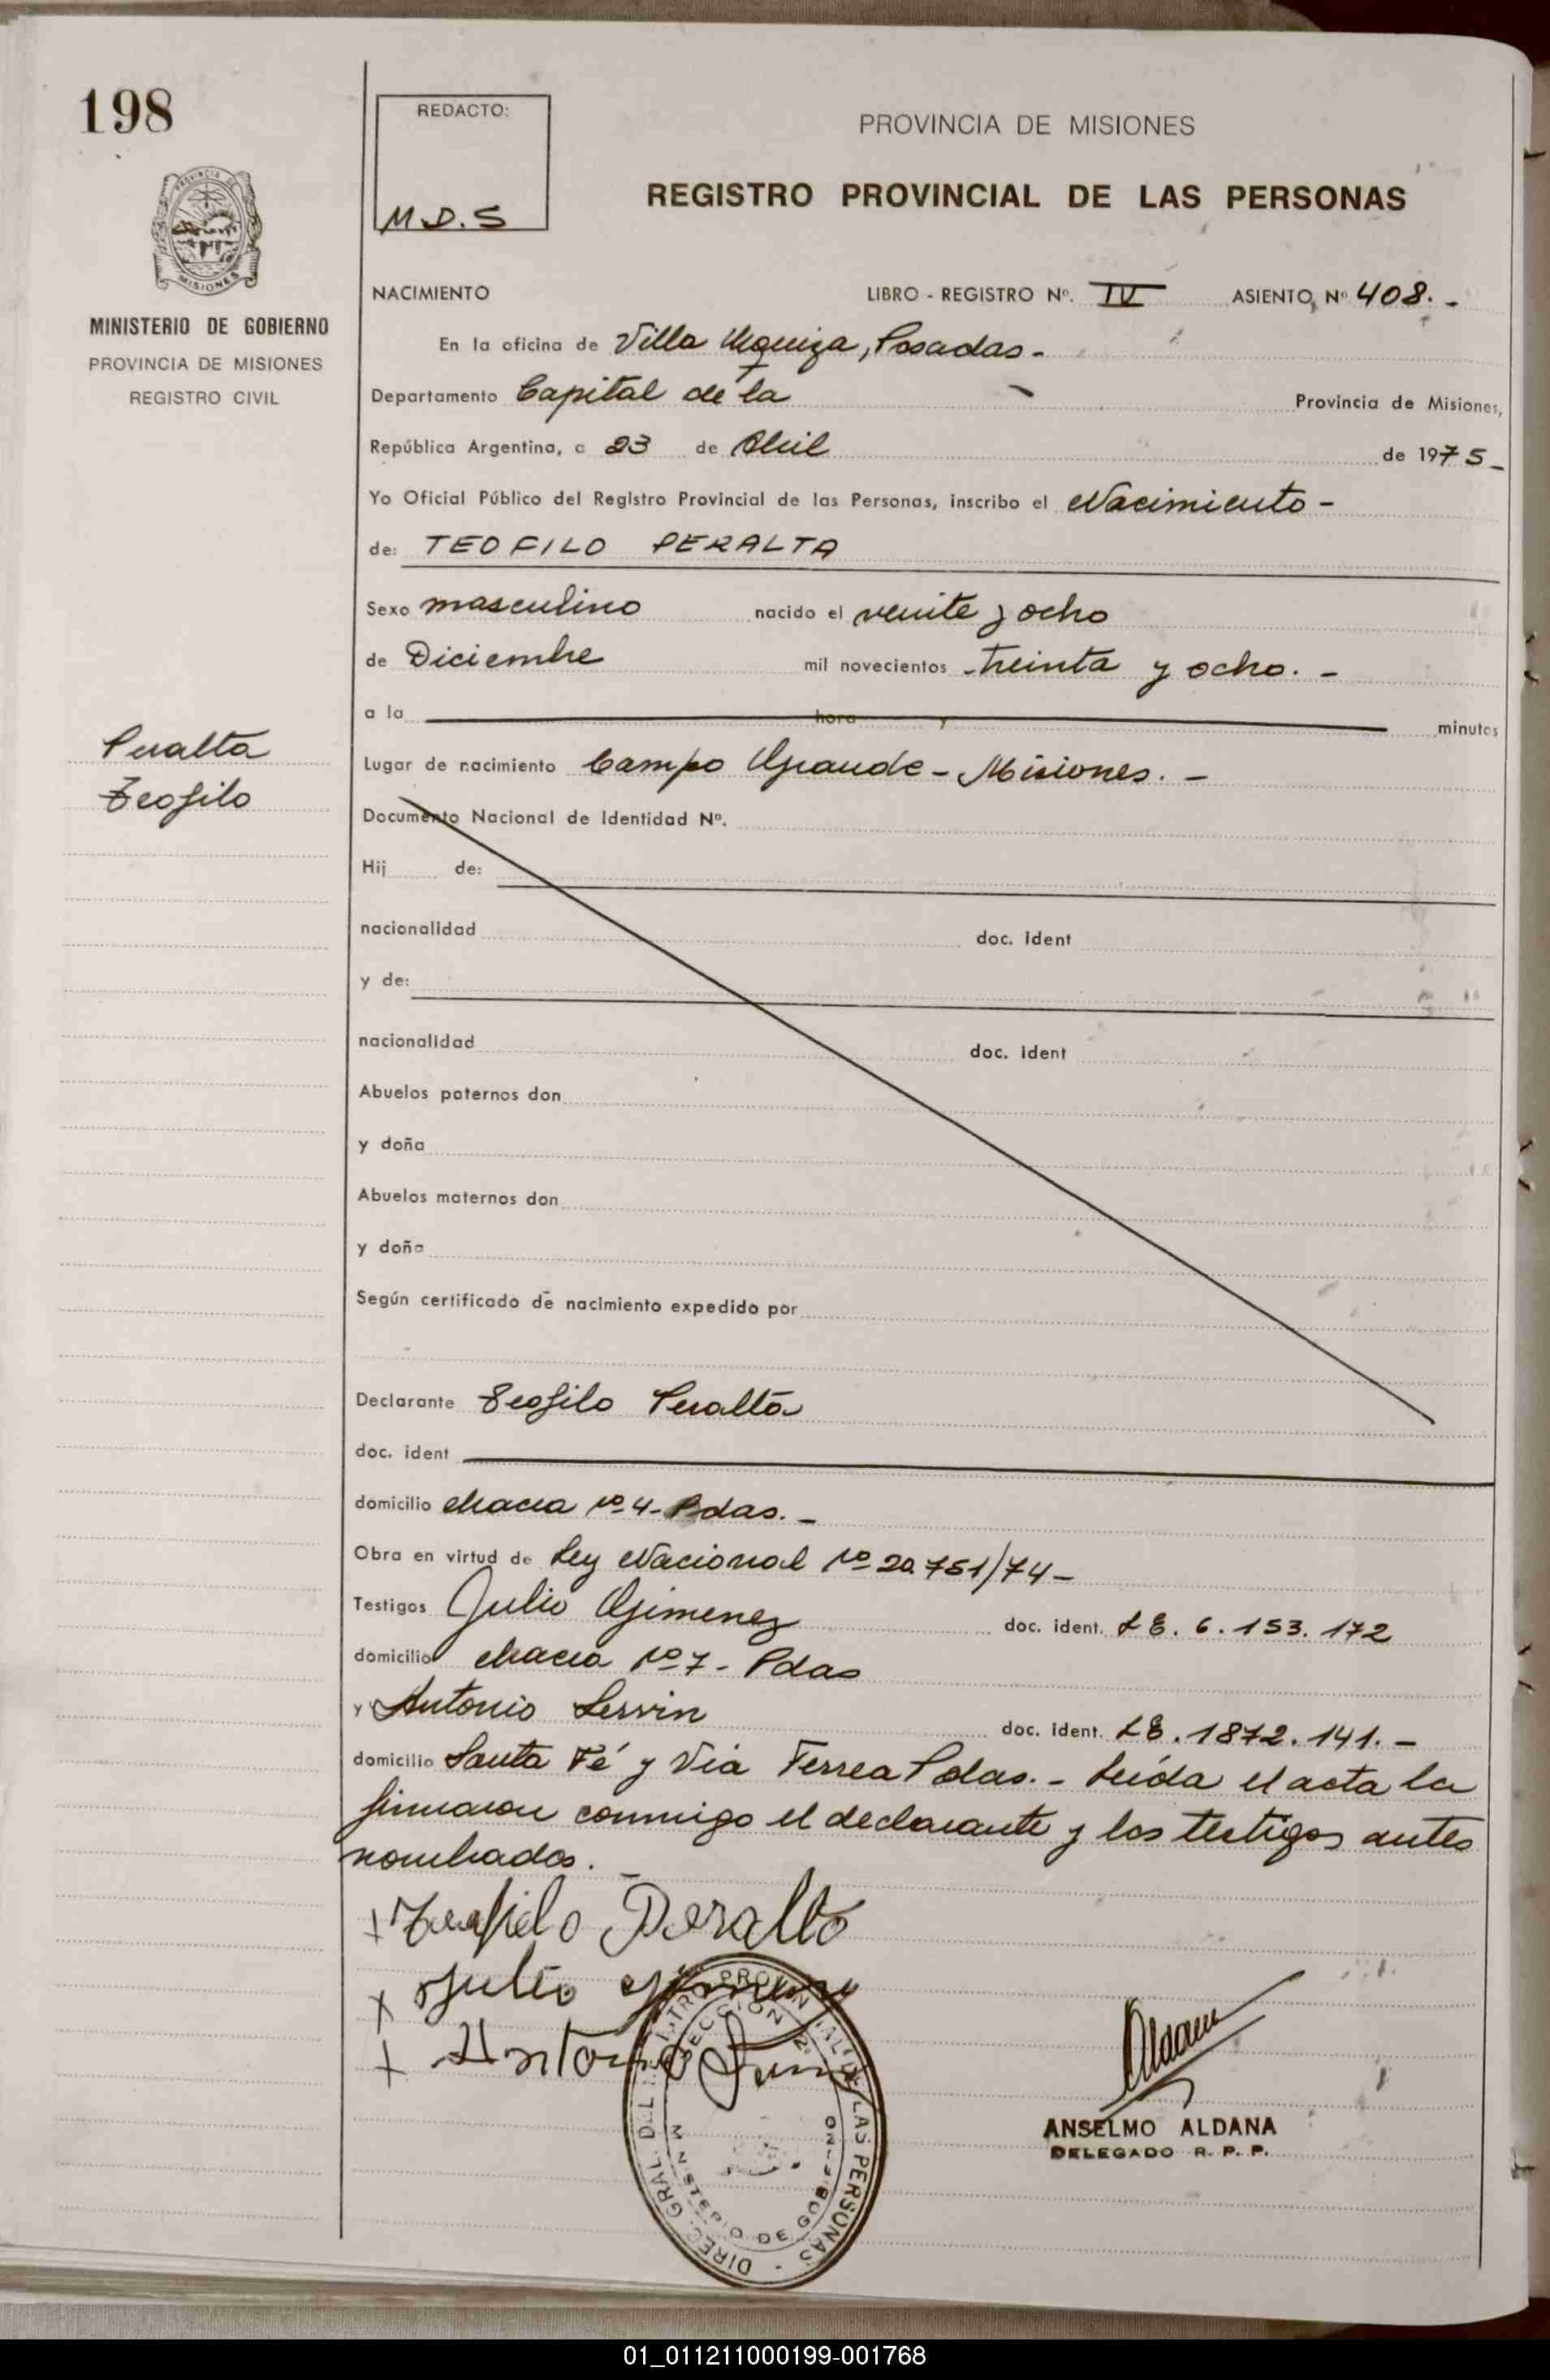 198
REDACTO:
M.D.S
PROVINCIA DE MISIONES
REGISTRO PROVINCIAL DE LAS PERSONAS
MISIONES
MINISTERIO DE GOBIERNO
PROVINCIA DE MISIONES
REGISTRO CIVIL
NACIMIENTO LIBRO - REGISTRO Nº. IV ASIENTO Nº 408. -
En la oficina de Villa Urquiza, Posadas -
Departamento Capital de la - Provincia de Misiones,
República Argentina, a 23 de Abril de 1975 -
Yo Oficial Público del Registro Provincial de las Personas, inscribo el Nacimiento -
de: TEOFILO PERALTA
Sexo masculino nacido el veinte y ocho
de Diciembre mil novecientos treinta y ocho. -
a la hora y minutos
Peralta
Teofilo
Lugar de nacimiento Campo Grande - Misiones. -
Documento Nacional de Identidad Nº.
Hij de:
nacionalidad doc. ident
y de:
nacionalidad doc. ident
Abuelos paternos don
y doña
Abuelos maternos don
y doña
Según certificado de nacimiento expedido por
Declarante Teofilo Peralta
doc. ident
domicilio chacra Nº 4 - Pdas. -
Obra en virtud de Ley Nacional Nº 20.751/74 -
Testigos Julio Gimenez doc. ident. LE. 6.153.172
domicilio chacra Nº 7 - Pdas
y Antonio Servin doc. ident. LE. 1872.141. -
domicilio Santa Fé y Via Ferrea Pdas. - Leída el acta la
firmaron conmigo el declarante y los testigos antes
nombrados. -
+ Teofilo Peralta
x Julio Gimenez
+ Antonio Servin
DIREC. GRAL. DEL REGISTRO PROVINCIAL DE LAS PERSONAS -
SECCION 2º
MINISTERIO DE GOBIERNO
Aldana
ANSELMO ALDANA
DELEGADO R. P. P.
01_011211000199-001768